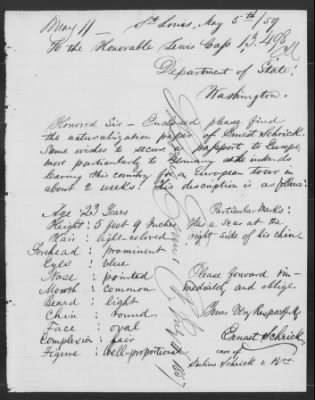 May 11 — St Louis, May 5th/59
To the Honorable Lewis Cass 13,498
Department of State;
Washington.
Honored Sir — Enclosed please find
the naturalization paper of Ernest Schrick.
Same wishes to secure a passport to Europe,
most particularly to Germany as he intends
leaving this country for a European tour in
about 2 weeks. His discription is as follows:
Age: 23 Years
Particular Marks:
Height: 5 feet 9 Inches
Has a scar at the
Hair: light-colored
right side of his chin.
Forehead: prominent
Eyes: blue
Nose: pointed
Please forward im-
Mouth: common
mediately, and oblige
Beard: light
Yours Very Respectfully,
Chin: round
Ernest Schrick,
Face: oval
care of
Complexion: fair
Julius Schrick & Bro.
Figure: well-proportioned